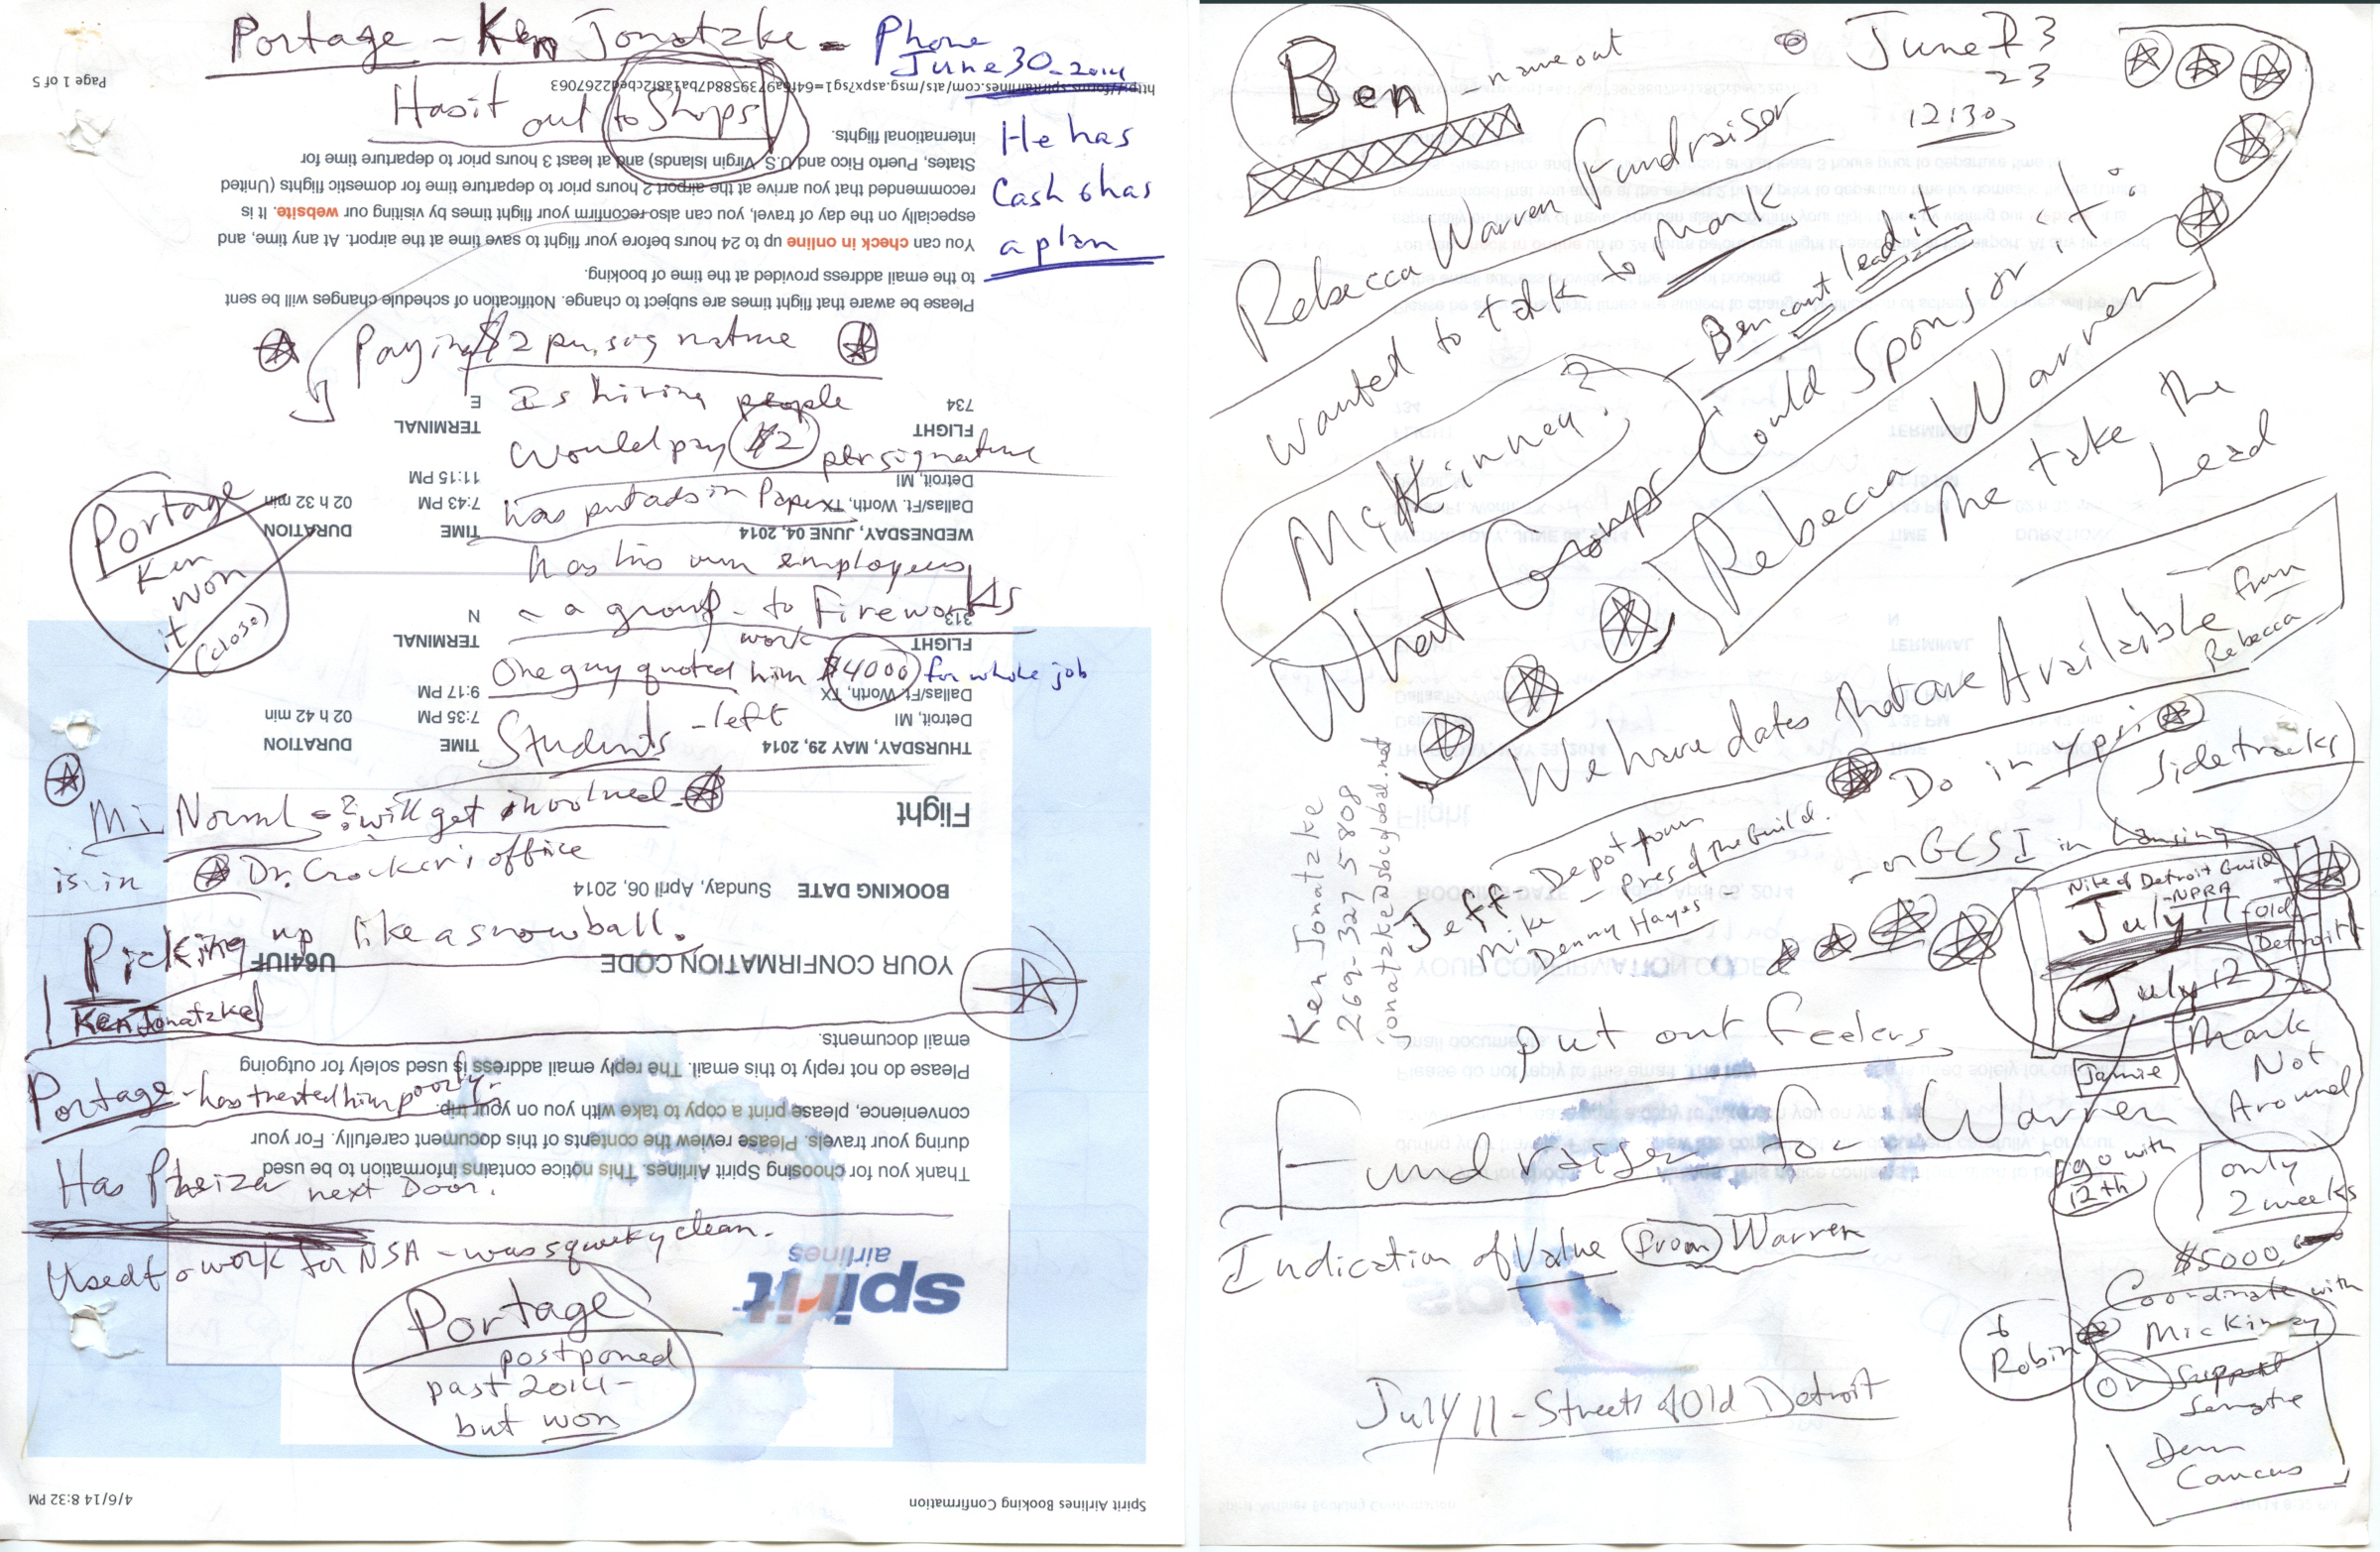 Portage - Ken Jonatzke - Phone
June 30 - 2014
Page 1 of 5
Has it out to Shops
He has
Cash & has
a plan
international flights.
States, Puerto Rico and U.S. Virgin Islands) and at least 3 hours prior to departure time for
recommended that you arrive at the airport 2 hours prior to departure time for domestic flights (United
especially on the day of travel, you can also reconfirm your flight times by visiting our website. It is
You can check in online up to 24 hours before your flight to save time at the airport. At any time, and
to the email address provided at the time of booking.
Please be aware that flight times are subject to change. Notification of schedule changes will be sent
Paying $2 per signature
Is hiring people
734 E
FLIGHT TERMINAL
Would pay $2 per signature
Detroit, MI 11:15 PM
Dallas/Ft. Worth, TX 7:43 PM 02 h 32 min
has put ads in Paper
WEDNESDAY, JUNE 04, 2014 TIME DURATION
Portage
Ken
won
it
(close)
has his own employees
- a group - to Fireworks
work
313 N
FLIGHT TERMINAL
One guy quoted him $4000 for whole job
Dallas/Ft. Worth, TX 9:17 PM
Detroit, MI 7:35 PM 02 h 42 min
Students - left
THURSDAY, MAY 29, 2014 TIME DURATION
Mi Norml - ? will get involved
Flight
is in Dr. Crocker's office
BOOKING DATE Sunday, April 06, 2014
Picking up like a snowball.
YOUR CONFIRMATION CODE U64IUF
Ken Jonatzke
email documents.
Please do not reply to this email. The reply email address is used solely for outgoing
Portage - has treated him poorly.
convenience, please print a copy to take with you on your trip.
during your travels. Please review the contents of this document carefully. For your
Thank you for choosing Spirit Airlines. This notice contains information to be used
Has Pheizer next Door.
Used to work for NSA - was squeky clean.
spirit
airlines
Portage
postponed
past 2014 -
but won
Spirit Airlines Booking Confirmation 4/6/14 8:32 PM
Ben - name out
June 23
23
12:30
Rebecca Warren Fundraiser
wanted to talk to Mark
Ben cant lead it
McKinney?
What Groups Could Sponsor it?
Rebecca Warren
The take the
Lead
We have dates that are Available from
Rebecca
Do in Ypsi
Sidetracks
- or GCSI in Lansing
Ken Jonatzke
269-327-5808
jonatzke@sbcglobal.net
Jeff - Depot town
Mike - Pres of the Guild.
Denny Hayes -
Nite of Detroit Guild
- NPRA
July 11 - Old
Detroit
July 12
Mark
Not
Around
Jamie
put out feelers
Fundraiser for Warren
go with
12th
only
2 weeks
$5000.
Indication of Value from Warren
Coordinate with
McKinney
Robin
or Support
Senate
Dem
Caucus
July 11 - Streets of Old Detroit